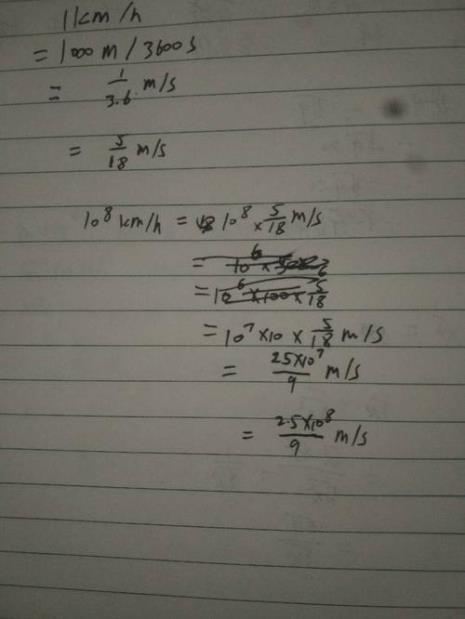 1km/h
= 1000 m / 3600 s
= 1/3.6 m/s
= 5/18 m/s
10⁸ km/h = 10⁸ × 5/18 m/s
= 10⁶ ×
= 10⁶ × 100 × 5/18
= 10⁷ × 10 × 5/18 m/s
= 25×10⁷/9 m/s
= 2.5×10⁸/9 m/s